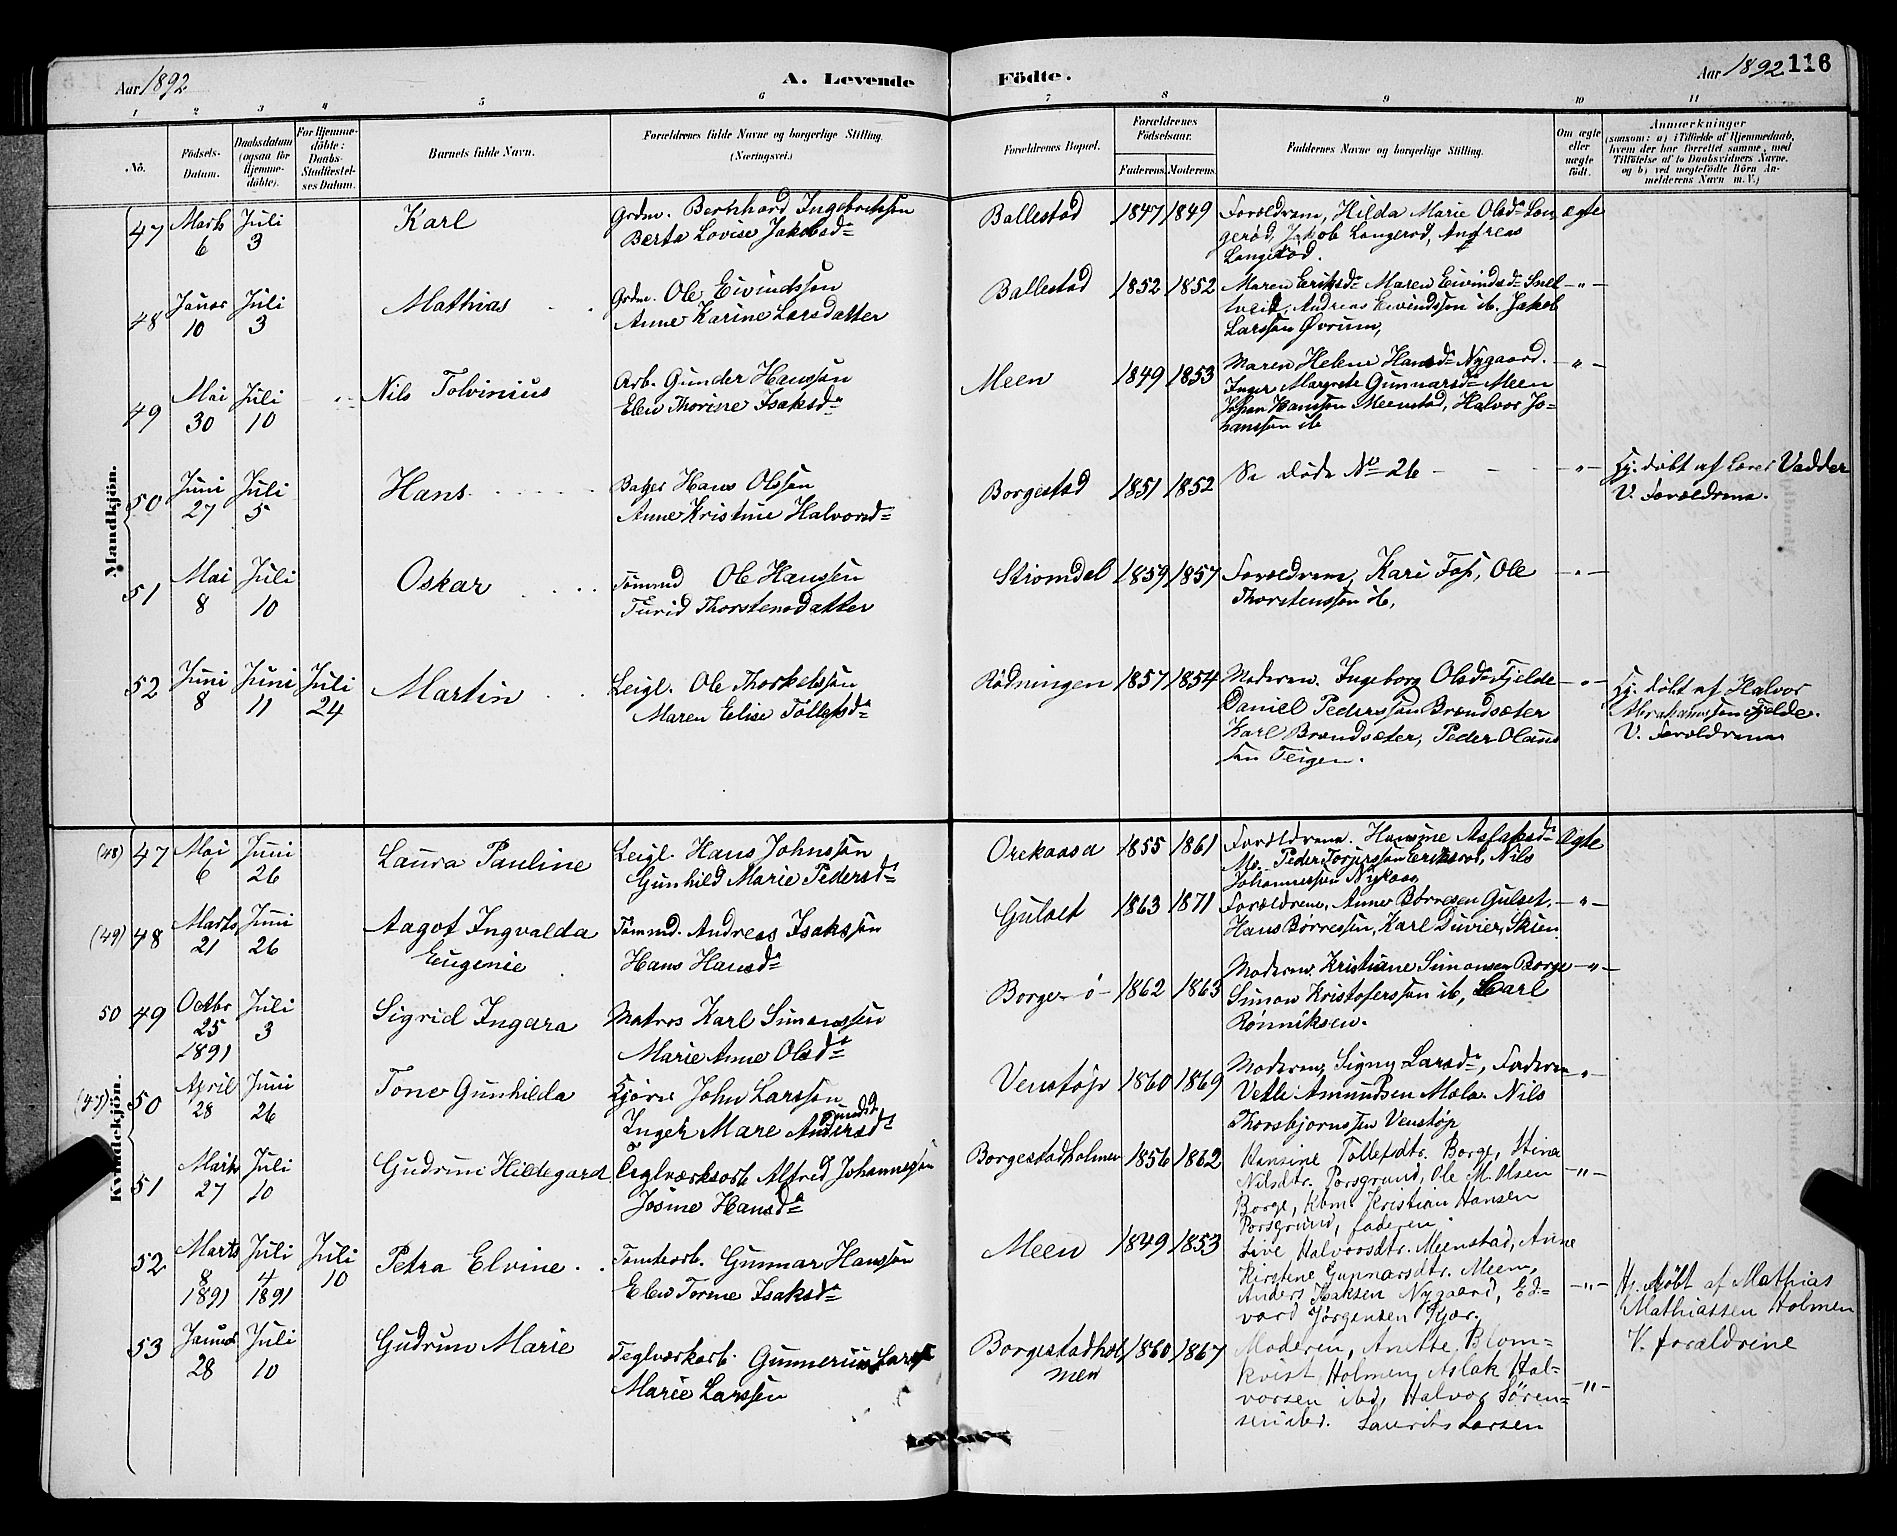 Aar 1892
A. Levende
Födte.
Aar 1892 116
1 2 3 4 5 6 7 8 9 10 11
No.
Födsels-
Datum.
Daabsdatum
(ogsaa for
Hjemme-
döbte).
For Hjemme-
döbte:
Daabs-
Stadfæstel-
ses Datum.
Barnets fulde Navn.
Forældrenes fulde Navne og borgerlige Stilling.
(Næringsvei.)
Forældrenes Bopæl.
Forældrenes
Födselsaar.
Faderens. Moderens.
Faddernes Navne og borgerlige Stilling.
Om ægte
eller
uægte
født.
Anmærkninger
(saasom: a) i Tilfælde af Hjemmedaab,
hvem der har forrettet samme, med
Tilföielse af to Daabsvidners Navne.
og b) ved uægtefödte Börn An-
melderens Navn m. V.)
Mandkjön.
47 Marts 6 Juli 3 Karl
Grdm. Bernhard Ingebretssen
Berte Lovise Jakobsd=
Ballestad 1847 1849
Forældrene, Hilda Marie Olsd= Lan
gerød, Jakob Langerød, Andreas
Langerød.
ægte
48 Januar 10 Juli 3 Mathias
Grdm. Ole Eivindssen
Anne Karine Larsdatter
Ballestad 1852 1852
Maren Eriksd= Maren Eivindsd= Snel
tveit, Andreas Eivindssen ib. Jakob
Larssen Øvrum,
-"-
49 Mai 30 Juli 10 Nils Tolvinius
Arb. Gunder Hanssen
Elen Thorine Isaksd=
Meen 1849 1853
Maren Helene Hansd= Nygaard.
Inger Margrete Gunnarsd= Meen
Johan Hanssen Meenstad, Halvor Jo=
hanssen ib
-"-
50 Juni 27 Juli 5 Hans
Bager Hans Olssen
Anne Kristine Halvorsd=
Borgestad 1851 1852
Se døde No 26
-"-
Hj. døbt af Lærer Vadder
V. Forældrene.
51 Mai 8 Juli 10 Oskar
Tømmd Ole Hanssen
Turid Thorstensdatter
Strømdal 1859 1857
Forældrene, Kari Foss, Ole
Thorstenssen ib,
-"-
52 Juni 8 Juni 11 Juli 24 Martin
Leigl. Ole Thorkelssen
Maren Elise Tollefsd=
Rødningen 1857 1854
Moderen, Ingeborg Olsd= Fjelde
Daniel Pederssen Brændsæter
Karl Brændsæter, Peder Olaus
sen Teigen.
-"-
Hj. døbt af Halvor
Abrahamssen Fjelde.
V. Forældrene
Kvindekjön.
(48) 47 Mai 6 Juni 26 Laura Pauline
Leigl. Hans Johnssen
Gunhild Marie Pedersd=
Orekaasa 1855 1861
Forældrene. Hansine Aslaksd=
Peder Torjerssen Eriksrød, Nils
Johannessen Nykaas
Ægte
(49) 48 Marts 21 Juni 26 Aagot Ingvalda
Eugenie
Tømmd. Andreas Isakssen
Hans Hansd=
Gulset 1863 1871
Forældrene, Anne Børresen Gulset,
Hans Børressen, Karl Duvier, Skien
-"-
50 49 Octbr 25 1891 Juli 3 Sigrid Ingara
Matros Karl Simonssen
Marie Anne Olsd=
Borge-ø- 1862 1863
Moderen, Kristiane Simonsen Borge
Simon Kristoferssen ib, Carl
Rønniksen.
-"-
(45) 50 April 28 Juni 26 Tone Gunhilda
Kjører John Larssen
Inger Mare Andersd=
Venstøp 1860 1869
Moderen, Signy Larsd=, Faderen
Vetle Amundsen Mæla. Nils
Thorsbjørnssen Venstøp
-"-
51 Marts 27 Juli 10 Gudrun Hildegard
Teglværksarb Alfred Johannesen
Josine Hansd=
Borgestadholmen 1856 1862
Hansine Tollefsdtr. Borge, Stine
Nilsdtr. Porsgrund, Ole M. Olsen
Borge, Kbm. Kristian Hansen
Porsgrund, faderen.
-"-
52 Marts 8 1891 Juli 4 1891 Juli 10 Petra Elvine
Tomtearb. Gunnar Hanssen
Elen Torine Isaksd=
Meen 1849 1853
Live Halvorsdtr. Meenstad, Anne
Kirstine Gunnarsdtr. Meen,
Anders Isaksen Nygaard, Ed=
vard Jørgensen Kjær.
-"-
Hj. døbt af Mathias
Mathiassen Holmen
V. forældrene
53 Januar 28 Juli 10 Gudrun Marie
Teglværkarb. Gunnerius Lars
Marie Larssen
Borgestadhol
men
1860 1867
Moderen, Anette Blom=
kvist, Holmen, Aslak Hal=
vorsen ibd, Halvor Sören=
sen ibd. Laurits Larsen
-"-